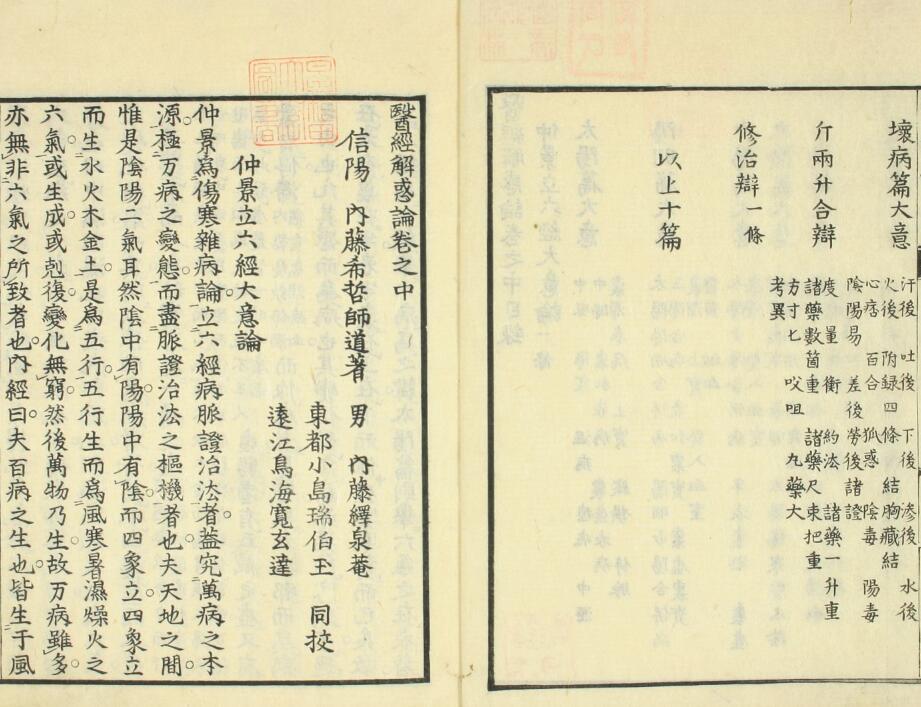 壞病篇大意
汗後 吐後 下後 滲後 水後
火後 附録四條 結胸藏結
心痞 百合 狐惑 陰毒 陽毒
陰陽易 差後勞後諸證
斤兩升合辯
度 量 衡 約法 諸藥一升重
諸藥數箇重 諸藥尺束把重
方寸匕 㕮咀 丸藥大
考異
修治辯一條
以上十篇
醫經解惑論卷之中
信陽 內藤希哲師道著 男 內藤繹泉菴
東都小島瑞伯玉
遠江鳥海寬玄達
同挍
仲景立六經大意論
仲景爲傷寒雜病論立六經病脈證治法者蓋究萬病之本
源極万病之變態而盡脈證治法之樞機者也夫天地之間
惟是陰陽二氣耳然陰中有陽陽中有陰而四象立四象立
而生水火木金土是爲五行五行生而爲風寒暑濕燥火之
六氣或生成或剋復變化無窮然後萬物乃生故万病雖多
亦無非六氣之所致者也內經曰夫百病之生也皆生于風